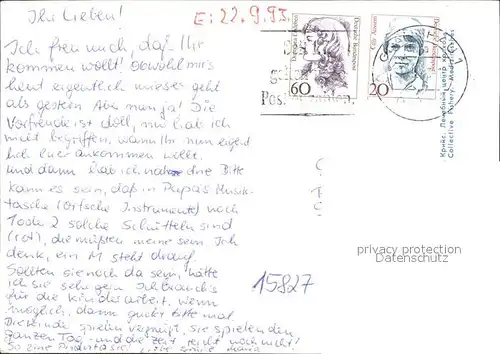 Ihr Lieben!
E: 22.9.93
Ich freu mich, daß Ihr
kommen wollt! Obwohl mir's
heut eigentlich mieser geht
als gestern. Aber man ja! Die
Vorfreude ist doll, nur hab ich
nicht begriffen, wann Ihr nun eigent
lich hier ankommen wollt.
und dann hab ich noch ne Bitte
kann es sein, daß in Papas Musik-
tasche (Orffsche Instrumente) noch
2 solche Schütteln sind
(rot), die müßten meine sein. Ich
denk, ein M steht drauf.
Sollten sie noch da sein, hätte
ich sie sehr gern. Ich brauch's
für die Kinderarbeit. wenn
möglich, dann guckt bitte mal
Die Kinder spielen vergnügt, sie spielen den
ganzen Tag - und die Zeit reicht noch nicht!
So eine Phantasie! Maria
60
Deutsche Bundespost
20
Cilly Aussem
Post
15827
Крнйс. Лечебный центр
Collective Fishery. Medical Centre
privacy protection
Datenschutz